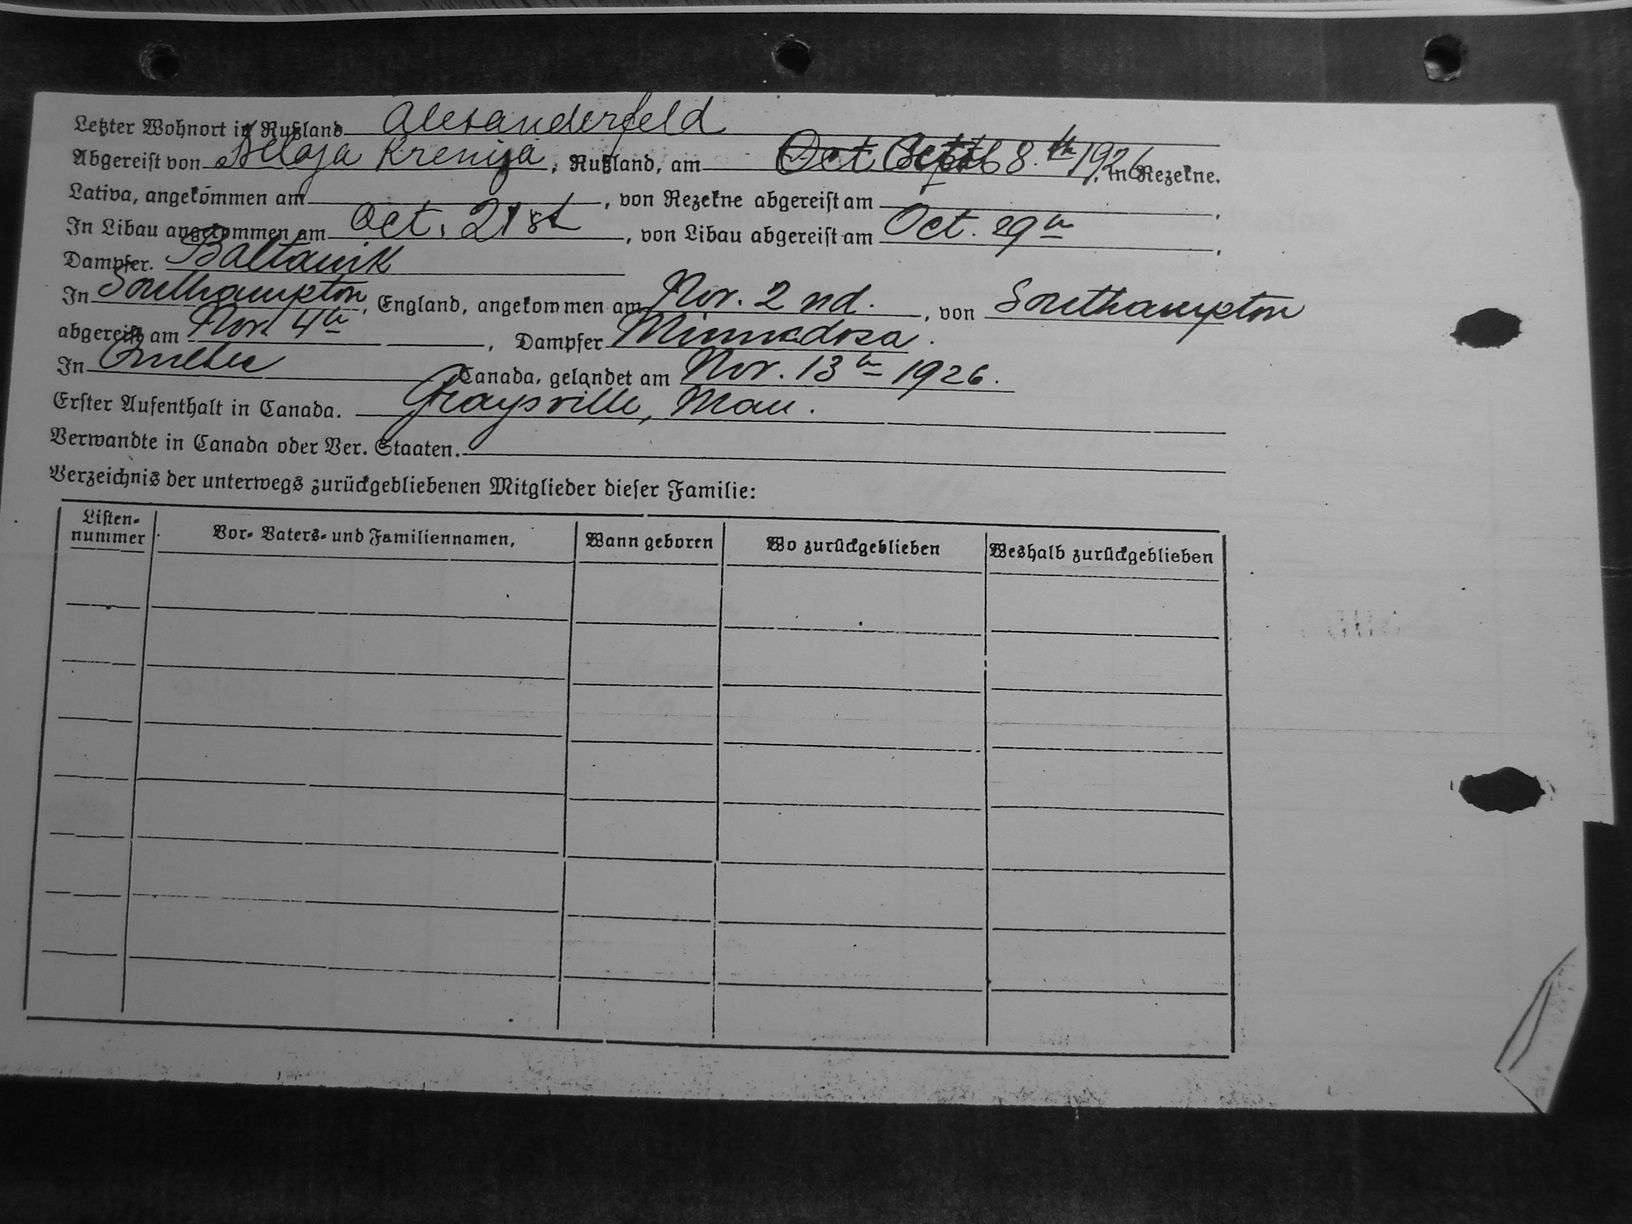 Letzter Wohnort in Rußland Alexanderfeld
Abgereist von Belaja Kreniza, Rußland, am Oct 8.th 1926, in Rezekne,
Lativa, angekommen am , von Rezekne abgereist am ,
In Libau angekommen am Oct. 21st , von Libau abgereist am Oct. 29th ,
Dampfer. Baltanik
In Southampton, England, angekommen am Nov. 2nd. , von Southampton
abgereist am Nov. 4th , Dampfer Minnedosa.
In Quebec , Canada, gelandet am Nov. 13th 1926.
Erster Aufenthalt in Canada. Graysville, Man.
Verwandte in Canada oder Ver. Staaten.
Verzeichnis der unterwegs zurückgebliebenen Mitglieder dieser Familie:
Listen-
nummer
Vor- Vaters- und Familiennamen,
Wann geboren
Wo zurückgeblieben
Weshalb zurückgeblieben